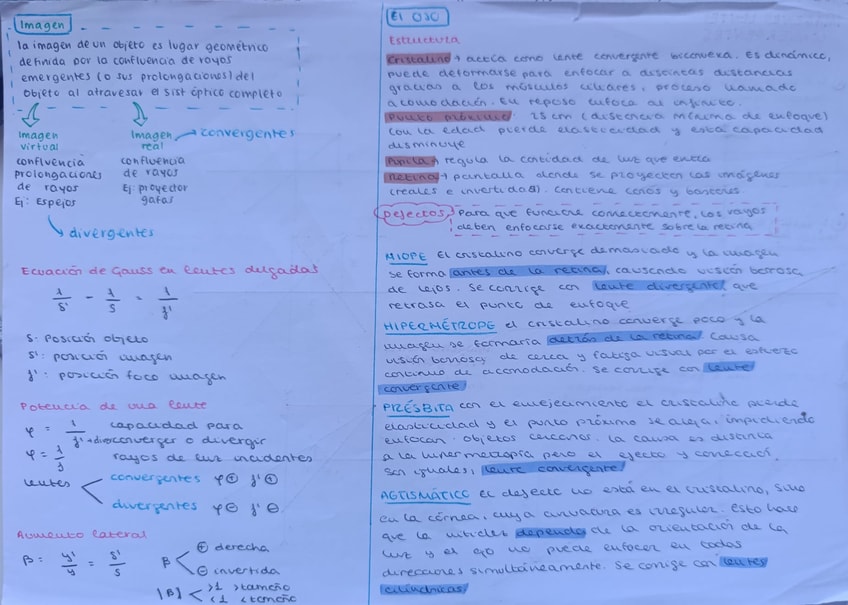 Imagen
la imagen de un objeto es lugar geométrico
definida por la confluencia de rayos
emergentes (o sus prolongaciones) del
objeto al atravesar el sist óptico completo
Imagen
virtual
confluencia
prolongaciones
de rayos
Ej: Espejos
divergentes
Imagen
real
convergentes
confluencia
de rayos
Ej: proyector
gafas
Ecuación de Gauss en lentes delgadas
1/s' - 1/s = 1/f'
s: posición objeto
s': posición imagen
f': posición foco imagen
Potencia de una lente
φ = 1/f' → capacidad para
converger o divergir
φ = 1/f rayos de luz incidentes
lentes
convergentes φ⊕ f'⊕
divergentes φ⊖ f'⊖
Aumento lateral
β = y'/y = s'/s
β < ⊕ derecha
⊖ invertida
|β| < >1 >tamaño
<1 <tamaño
El OJO
Estructura
Cristalino → actúa como lente convergente biconvexa. Es dinámico,
puede deformarse para enfocar a distintas distancias
gracias a los músculos ciliares, proceso llamado
acomodación. En reposo enfoca al infinito.
Punto próximo: 25cm (distancia mínima de enfoque)
con la edad pierde elasticidad y está capacidad
disminuye
Pupila → regula la cantidad de luz que entra
Retina → pantalla donde se proyectan las imágenes
(reales e invertidas). Contiene conos y bastones
Defectos Para que funcione correctamente, los rayos
deben enfocarse exactamente sobre la retina
MIOPE El cristalino converge demasiado y la imagen
se forma antes de la retina, causando visión borrosa
de lejos. Se corrige con lente divergente que
retrasa el punto de enfoque
HIPERMÉTROPE el cristalino converge poco y la
imagen se formaría detrás de la retina. Causa
visión borrosa de cerca y fatiga visual por el esfuerzo
continuo de acomodación. Se corrige con lente
convergente
PRÉSBITA con el envejecimiento el cristalino pierde
elasticidad y el punto próximo se aleja, impidiendo
enfocar objetos cercanos. La causa es distinta
a la hipermetropía pero el efecto y corrección
son iguales, lente convergente
AGTISMÁTICO el defecto no está en el cristalino, sino
en la córnea, cuya curvatura es irregular. Esto hace
que la nitidez dependa de la orientación de la
luz y el ojo no puede enfocar en todas
direcciones simultáneamente. Se corrige con lentes
cilíndricas